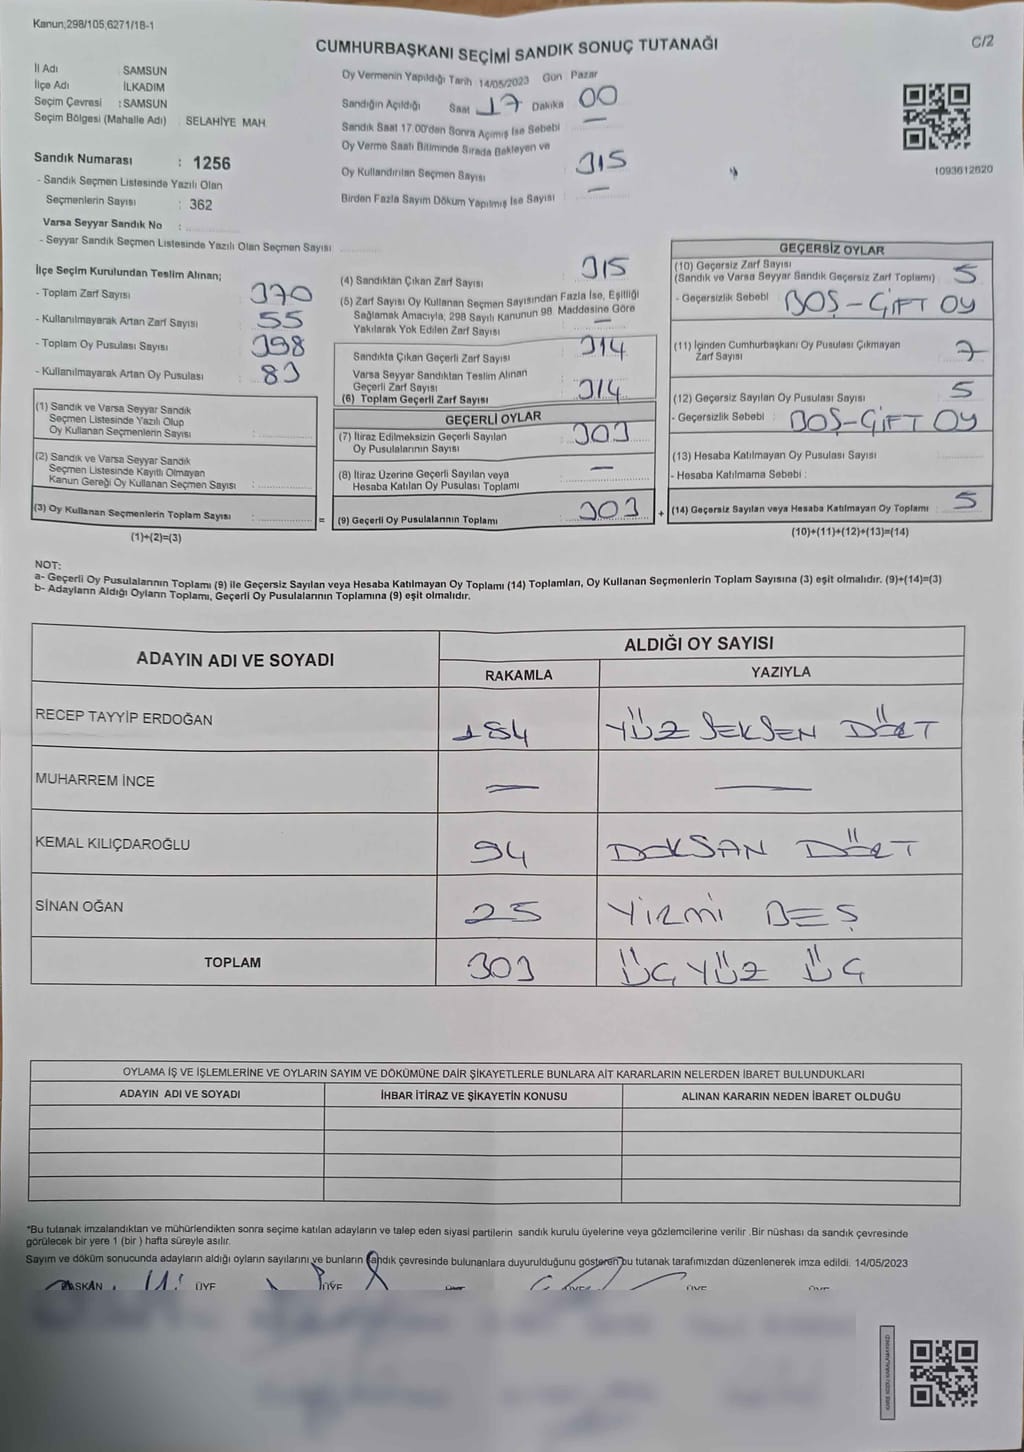 Kanun;298/105,6271/18-1
CUMHURBAŞKANI SEÇİMİ SANDIK SONUÇ TUTANAĞI
C/2
İl Adı : SAMSUN
İlçe Adı İLKADIM
Seçim Çevresi : SAMSUN
Seçim Bölgesi (Mahalle Adı) SELAHİYE MAH
Sandık Numarası : 1256
- Sandık Seçmen Listesinde Yazılı Olan
Seçmenlerin Sayısı : 362
Varsa Seyyar Sandık No :
- Seyyar Sandık Seçmen Listesinde Yazılı Olan Seçmen Sayısı
Oy Vermenin Yapıldığı Tarih 14/05/2023 Gün Pazar
Sandığın Açıldığı Saat 17 Dakika 00
Sandık Saat 17.00'den Sonra Açımış İse Sebebi —
Oy Verme Saati Bitiminde Sırada Bekleyen ve
Oy Kullandırılan Seçmen Sayısı 315
Birden Fazla Sayım Döküm Yapılmış İse Sayısı —
1093612620
İlçe Seçim Kurulundan Teslim Alınan;
- Toplam Zarf Sayısı 370
- Kullanılmayarak Artan Zarf Sayısı 55
- Toplam Oy Pusulası Sayısı 398
- Kullanılmayarak Artan Oy Pusulası 83
(1) Sandık ve Varsa Seyyar Sandık
Seçmen Listesinde Yazılı Olup
Oy Kullanan Seçmenlerin Sayısı :
(2) Sandık ve Varsa Seyyar Sandık
Seçmen Listesinde Kayıtlı Olmayan
Kanun Gereği Oy Kullanan Seçmen Sayısı :
(3) Oy Kullanan Seçmenlerin Toplam Sayısı :
(1)+(2)=(3)
(4) Sandıktan Çıkan Zarf Sayısı 315
(5) Zarf Sayısı Oy Kullanan Seçmen Sayısından Fazla İse, Eşitliği
Sağlamak Amacıyla, 298 Sayılı Kanunun 98. Maddesine Göre
Yakılarak Yok Edilen Zarf Sayısı —
Sandıkta Çıkan Geçerli Zarf Sayısı 314
Varsa Seyyar Sandıktan Teslim Alınan
Geçerli Zarf Sayısı
(6) Toplam Geçerli Zarf Sayısı 314
GEÇERLİ OYLAR
(7) İtiraz Edilmeksizin Geçerli Sayılan
Oy Pusulalarının Sayısı 303
(8) İtiraz Üzerine Geçerli Sayılan veya
Hesaba Katılan Oy Pusulası Toplamı —
= (9) Geçerli Oy Pusulalarının Toplamı 303
GEÇERSİZ OYLAR
(10) Geçersiz Zarf Sayısı
(Sandık ve Varsa Seyyar Sandık Geçersiz Zarf Toplamı) 5
- Geçersizlik Sebebi BOŞ-ÇİFT OY
(11) İçinden Cumhurbaşkanı Oy Pusulası Çıkmayan
Zarf Sayısı 7
(12) Geçersiz Sayılan Oy Pusulası Sayısı 5
- Geçersizlik Sebebi : BOŞ-ÇİFT OY
(13) Hesaba Katılmayan Oy Pusulası Sayısı
- Hesaba Katılmama Sebebi :
+ (14) Geçersiz Sayılan veya Hesaba Katılmayan Oy Toplamı 5
(10)+(11)+(12)+(13)=(14)
NOT:
a- Geçerli Oy Pusulalarının Toplamı (9) ile Geçersiz Sayılan veya Hesaba Katılmayan Oy Toplamı (14) Toplamları, Oy Kullanan Seçmenlerin Toplam Sayısına (3) eşit olmalıdır. (9)+(14)=(3)
b- Adayların Aldığı Oyların Toplamı, Geçerli Oy Pusulalarının Toplamına (9) eşit olmalıdır.
ADAYIN ADI VE SOYADI
ALDIĞI OY SAYISI
RAKAMLA YAZIYLA
RECEP TAYYİP ERDOĞAN 184 YÜZ SEKSEN DÖRT
MUHARREM İNCE — —
KEMAL KILIÇDAROĞLU 94 DOKSAN DÖRT
SİNAN OĞAN 25 YİRMİ BEŞ
TOPLAM 303 ÜÇ YÜZ ÜÇ
OYLAMA İŞ VE İŞLEMLERİNE VE OYLARIN SAYIM VE DÖKÜMÜNE DAİR ŞİKAYETLERLE BUNLARA AİT KARARLARIN NELERDEN İBARET BULUNDUKLARI
ADAYIN ADI VE SOYADI İHBAR İTİRAZ VE ŞİKAYETİN KONUSU ALINAN KARARIN NEDEN İBARET OLDUĞU
*Bu tutanak imzalandıktan ve mühürlendikten sonra seçime katılan adayların ve talep eden siyasi partilerin sandık kurulu üyelerine veya gözlemcilerine verilir .Bir nüshası da sandık çevresinde
görülecek bir yere 1 (bir ) hafta süreyle asılır.
Sayım ve döküm sonucunda adayların aldığı oyların sayılarını ve bunların sandık çevresinde bulunanlara duyurulduğunu gösteren bu tutanak tarafımızdan düzenlenerek imza edildi. 14/05/2023
BAŞKAN ÜYE ÜYE ÜYE ÜYE ÜYE ÜYE
KARE KODU KARALAMAYINIZ!